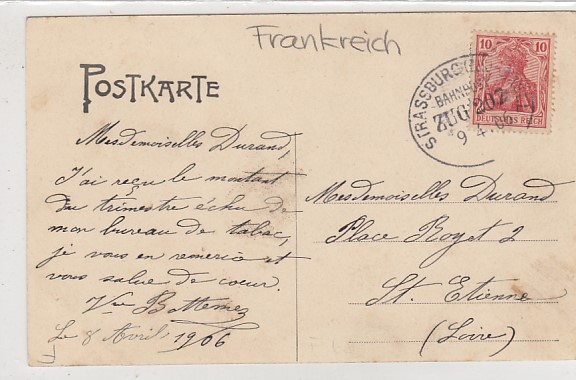 Frankreich
POSTKARTE
10 10
DEUTSCHES REICH
STRASSBURG
BAHNHO
ZUG 202
9 4 06
Mesdemoiselles Durand,
J'ai reçu le montant
du trimestre échu de
mon bureau de tabac,
je vous en remercie et
vous salue de coeur.
Vve
Le 8 Avril 1906
Mesdemoiselles Durand
Place Royet 2
St. Etienne
(Loire)